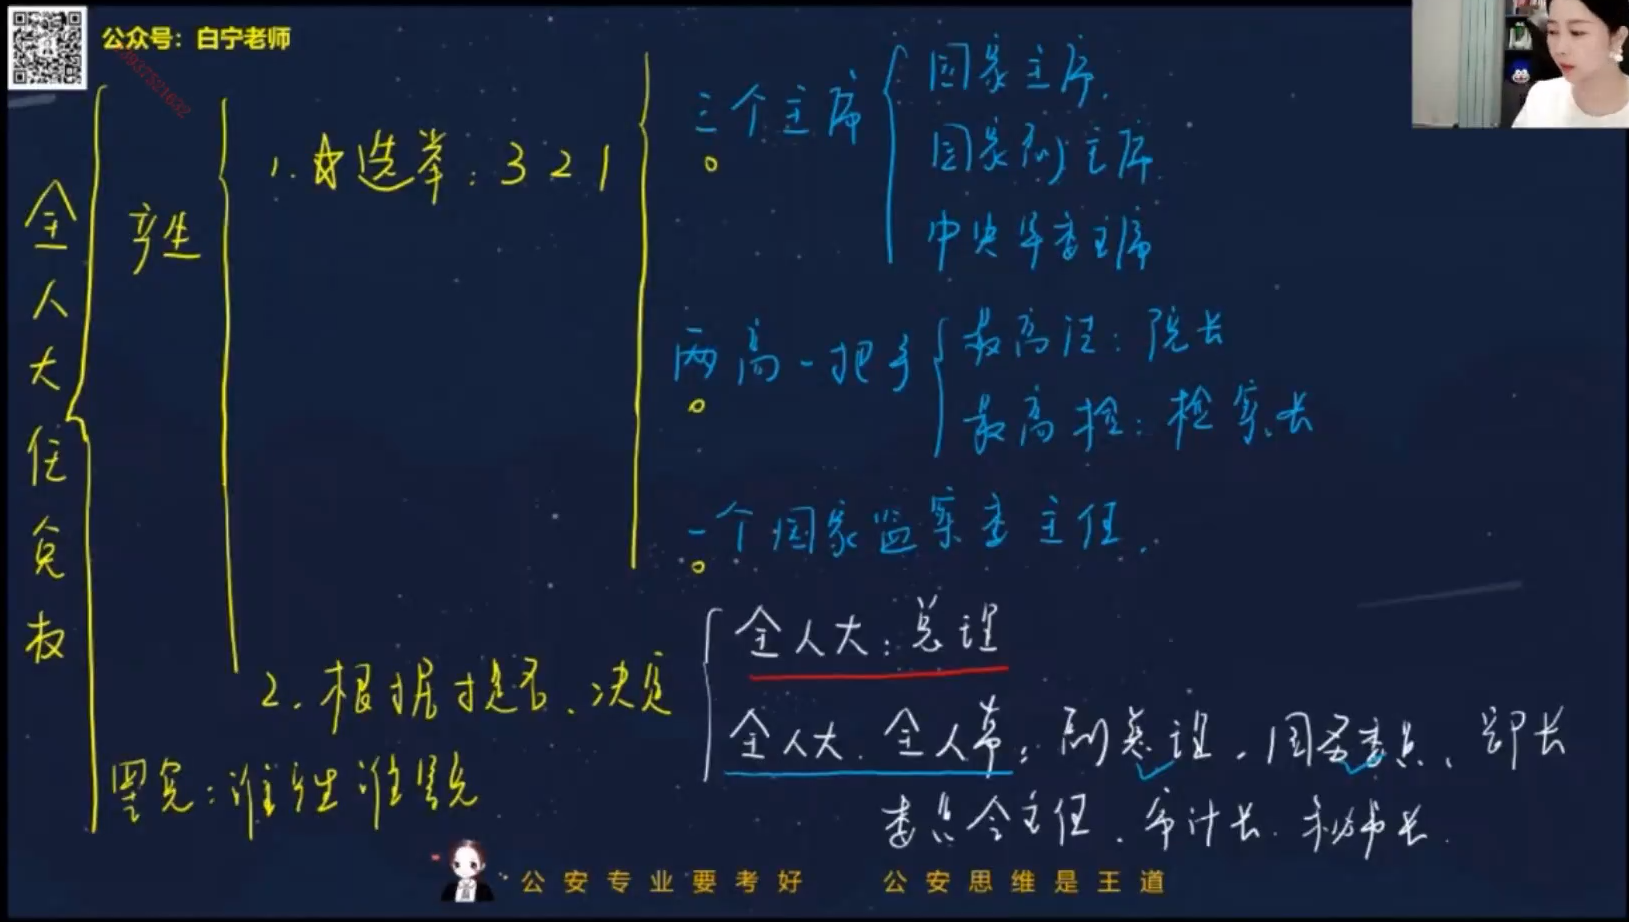 公众号：白宁老师
全人大任免权
产生
1.☆选举：321
三个主席
国家主席.
国家副主席
中央军委主席
两高一把手
最高法：院长
最高检：检察长
一个国家监察委主任.
2.根据提名、决定
全人大：总理
全人大.全人常：副总理、国务委员、部长
委员会主任、审计长.秘书长.
罢免：谁产生谁罢免
公安专业要考好 公安思维是王道